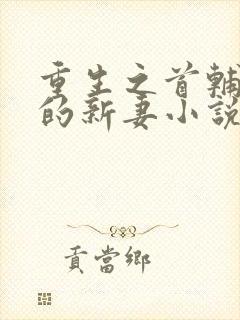 重生之首輔
的新妻小說
貢當鄉